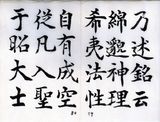 乃述銘云
綿邈神理
希夷法性
自有成空
從凡入聖
于昭大士